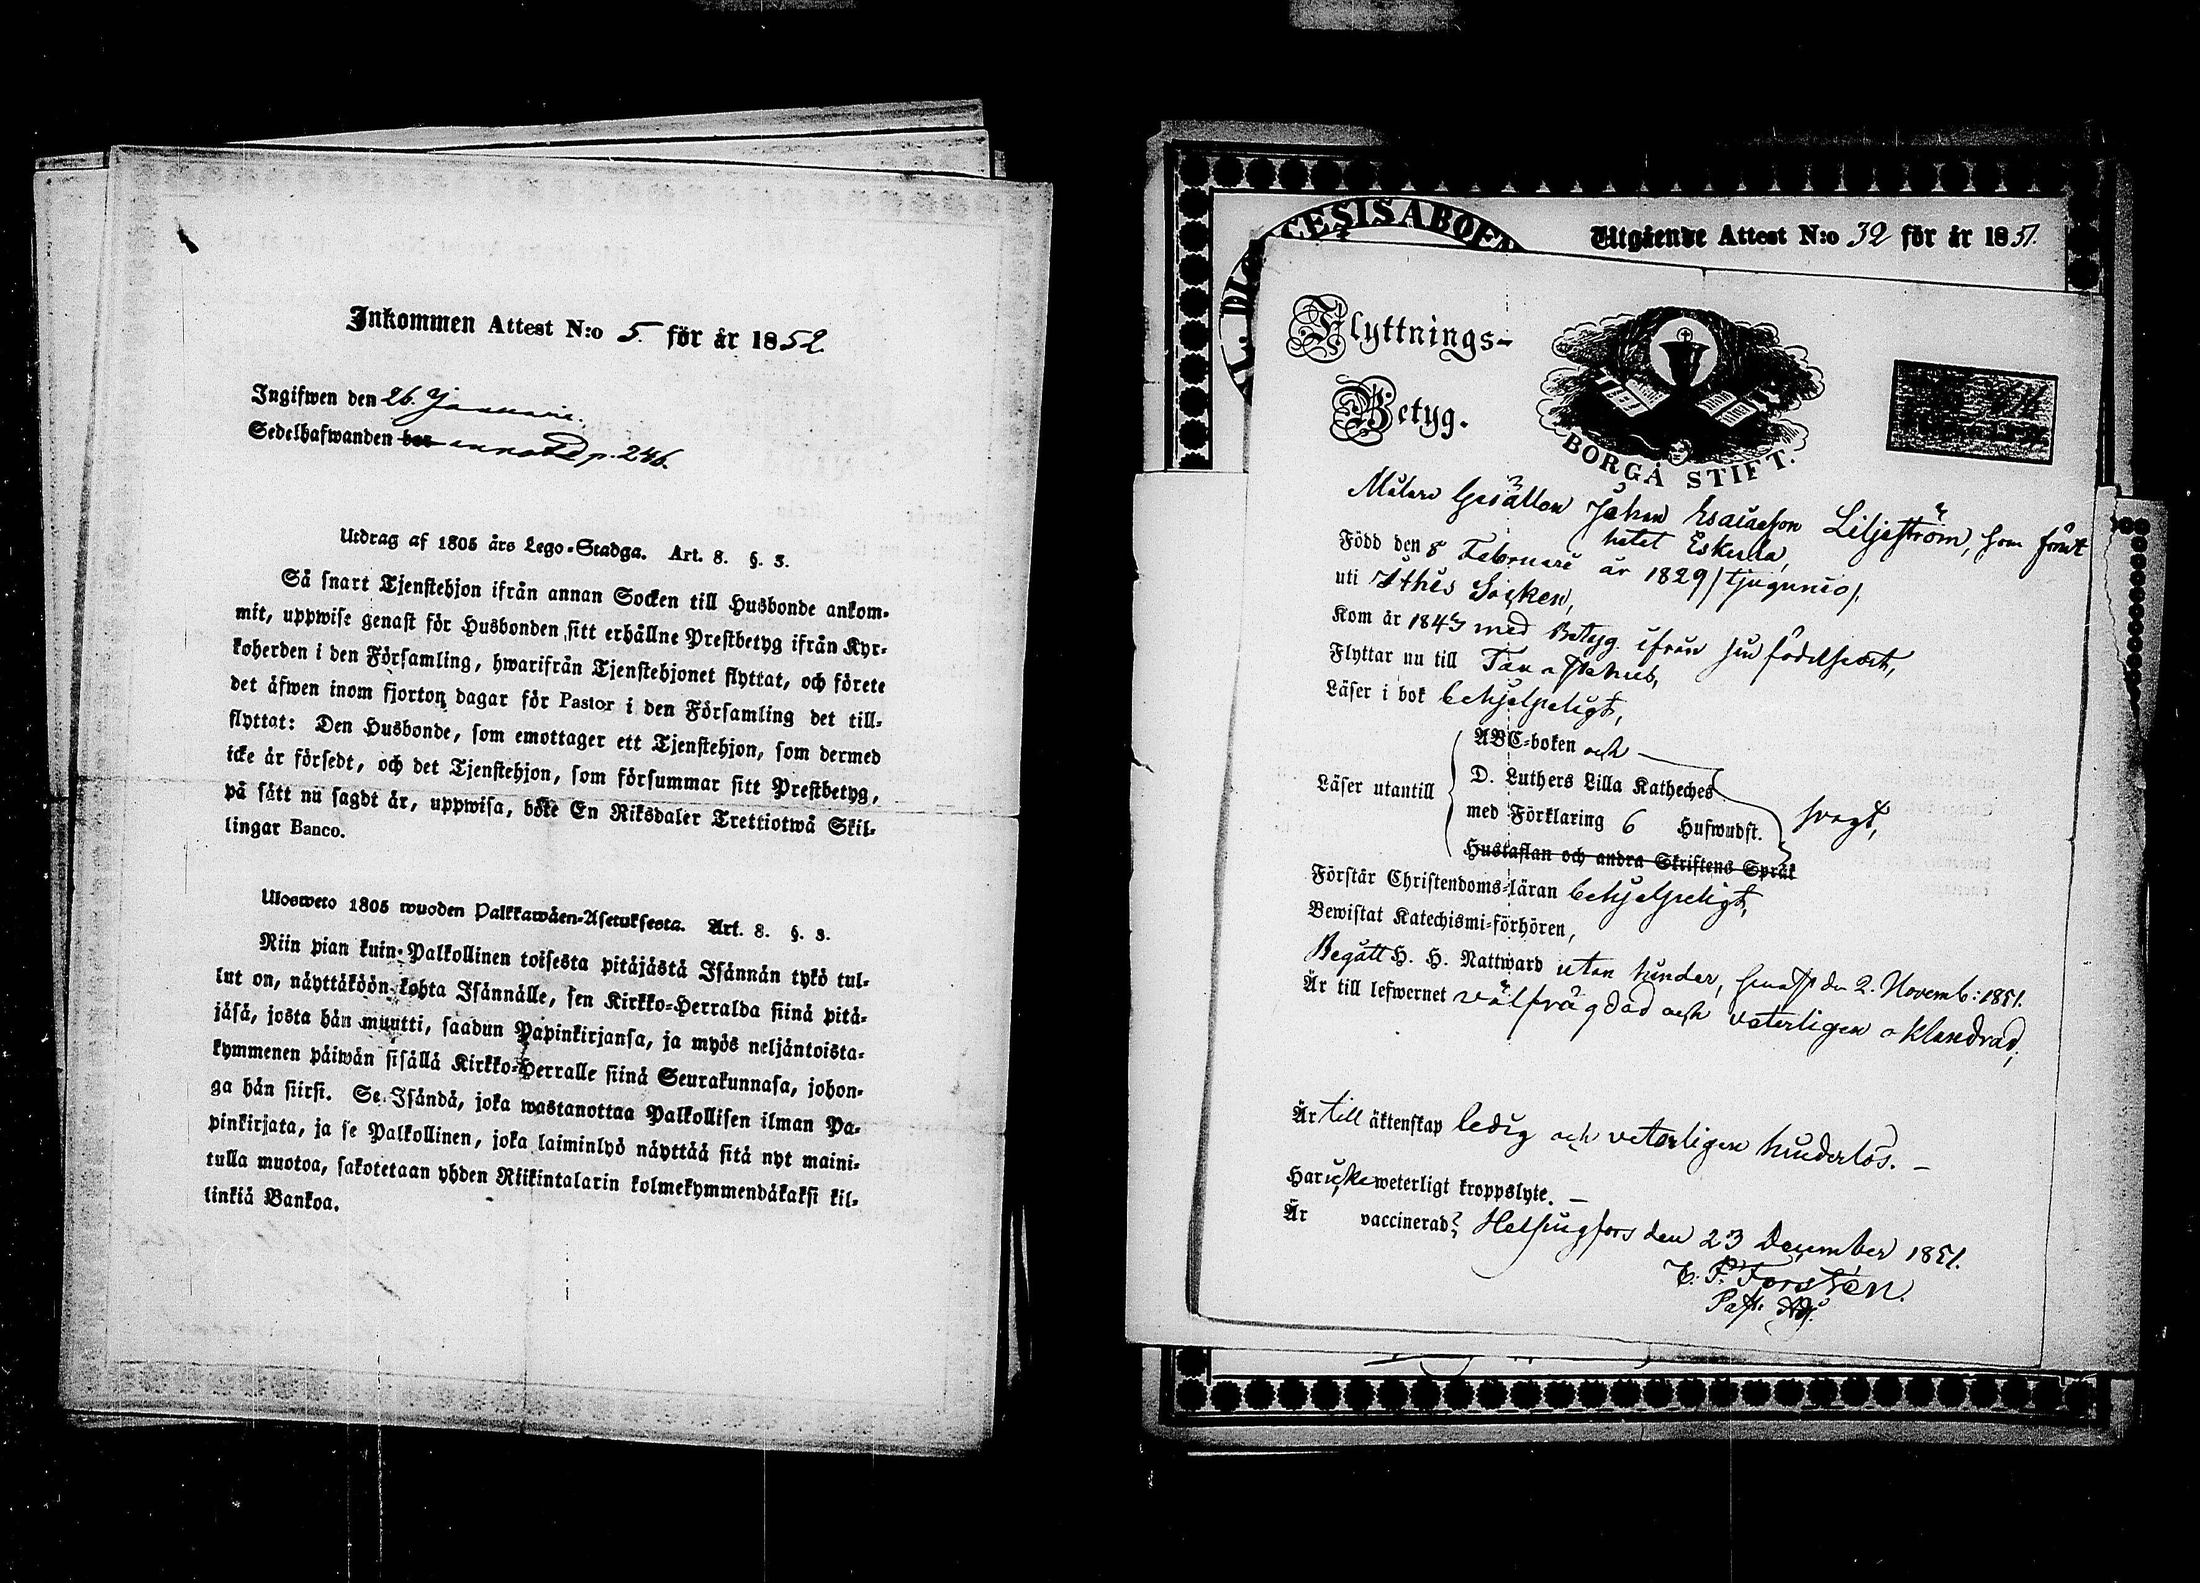 Inkommen Attest N:o 5. för år 1852.
Ingifwen den 26. Januarii.
Sedelhafwanden bor annotd p. 246.
Utdrag af 1805 års Lego-Stadga. Art. 8. §. 3.
Så snart Tjenstehjon ifrån annan Socken till Husbonde ankom-
mit, uppwise genast för Husbonden sitt erhållne Prestbetyg ifrån Kyr-
koherden i den Församling, hwarifrån Tjenstehjonet flyttat, och förete
det äfwen inom fjorton dagar för Pastor i den Församling det till-
flyttat: Den Husbonde, som emottager ett Tjenstehjon, som dermed
icke är försedt, och det Tjenstehjon, som försummar sitt Prestbetyg,
på sätt nu sagdt är, uppwisa, böte En Riksdaler Trettiotwå Skil-
lingar Banco.
Ulosweto 1805 wuoden Palkkawäen-Asetuksesta. Art. 8. §. 3.
Niin pian kuin Palkollinen toisesta pitäjästä Isännän tykö tul-
lut on, näyttäköön kohta Isännälle, sen Kirkko-Herralda siinä pitä-
jäsä, josta hän muutti, saadun Papinkirjansa, ja myös neljäntoista-
kymmenen päiwän sisällä Kirkko-Herralle siinä Seurakunnasa, johon-
ga hän siirsi. Se Isändä, joka wastanottaa Palkollisen ilman Pa-
pinkirjata, ja se Palkollinen, joka laiminlyö näyttää sitä nyt maini-
tulla muotoa, sakotetaan yhden Riikintalarin kolmekymmendäkaksi kil-
linkiä Bankoa.
CESIS ABOEN
Utgående Attest N:o 32 för år 1851.
Flyttnings-
Betyg.
BORGÅ STIFT.
Målare Gesällen Johan Esaiasson Liljeström, som förut
hetat Eskerla,
Född den 8 Februari år 1829 /tjugunio/.
uti Ithis Socken,
Kom år 1843 med Betyg ifrån sin födelseort,
Flyttar nu till Tavastehus,
Läser i bok behjelpeligt,
ABC-boken och
D. Luthers Lilla Katheches
Läser utantill
med Förklaring 6 Hufwudst.
svagt,
Hustaflan och andra Skriftens Språk
Förstår Christendoms-läran behjelpeligt,
Bewistat Katechismi-förhören,
Begått H. H. Nattward utan hinder, senast den 2. Novemb: 1851.
Är till lefwernet välfrägdad och veterligen oklandrad,
Är till äktenskap ledig och veterligen hinderlös. —
Har icke weterligt kroppslyte. —
Är vaccinerad? Helsingfors den 23 December 1851.
Forstén.
Past. Adj.